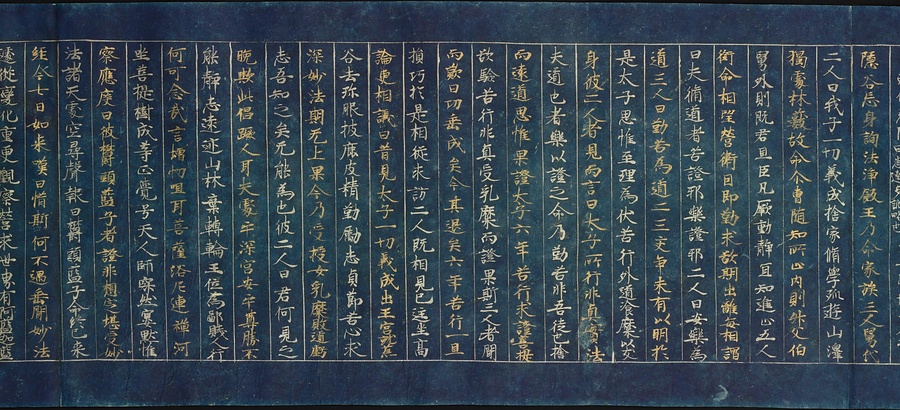 隱谷忘身詢法淨飯王乃命家族三人舅氏
二人曰我子一切義成捨家脩學孤遊山澤
獨處林藪故命尒曹随知所止內則叔父伯
舅外則既君且臣凡厥動靜宜知進止五人
銜命相望營衛因即勤求欲期出離每相謂
曰夫脩道者苦證耶樂證耶二人曰安樂為
道三人曰勤苦為道二三交争未有以明於
是太子思惟至理為伏苦行外道節麻米以支
身彼二人者見而言曰太子所行非真實法
夫道也者樂以證之今乃勤苦非吾徒也捨
而遠遁思惟果證太子六年苦行未證菩提
欲驗苦行非真受乳糜而證果斯三人者聞
而歎曰功垂成矣今其退矣六年苦行一旦
損功於是相從求訪二人既相見已匡坐高
論更相議曰昔見太子一切義成出王宮就荒
谷去珎服披鹿皮精勤勵志貞節苦心求
深妙法期无上果今乃受牧女乳糜敗道虧
志吾知之矣无能為也彼二人曰君何見之
晚歟此猖蹶人耳夫處乎深宮安乎尊勝不
能靜志遠迹山林棄轉輪王位為鄙賤人行
何可念哉言增忉怛耳菩薩浴尼連禪河
坐菩提樹成等正覺号天人師寂然宴默惟
察應度曰彼欝頭藍子者證非想定堪受妙
法諸天處空尋聲報曰欝頭藍子命終已來
經今七日如來嘆曰惜斯何不遇垂聞妙法
遽從變化重更觀察營求世界有阿藍迦藍